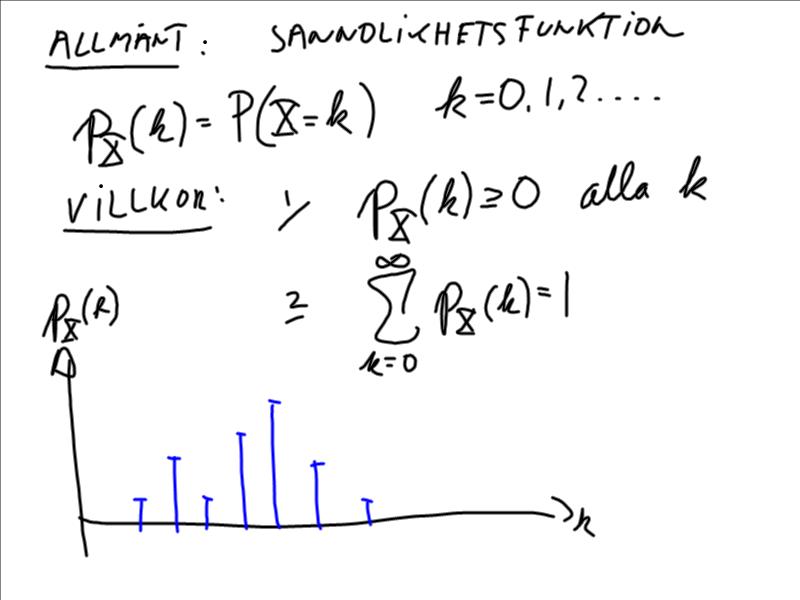 ALLMÄNT: SANNOLIKHETSFUNKTION
p_X(k) = P(X=k) k=0,1,2....
VILLKOR: 1/ p_X(k) ≥ 0 alla k
2 ∑_{k=0}^{∞} p_X(k) = 1
p_X(k)
k